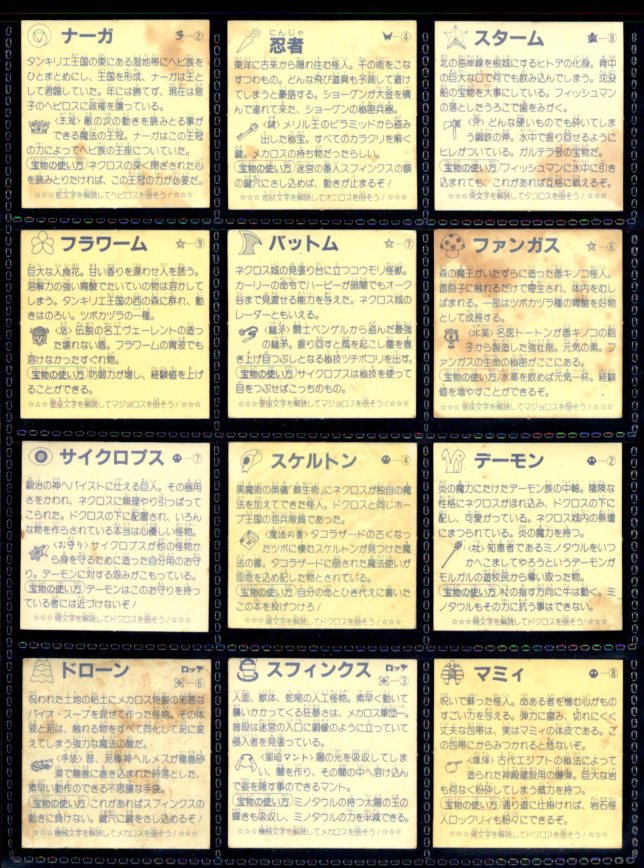 ナーガ ②
タンキリエ王国の東にある湿地帯にヘビ族を
ひとまとめにし、王国を形成、ナーガは王と
して君臨していた。年には勝てず、現在は息
子のヘビロスに政権を譲っている。
《王冠》敵の次の動きを読みとる事が
できる魔法の王冠。ナーガはこの王冠
の力によってヘビ族の王座についていた。
宝物の使い方 ネクロスの深く閉ざされた心
を読みとりたければ、この王冠の力が必要だ。
☆☆☆蛇文字を解読してヘビロスを倒そう!☆☆☆
忍者 ④
にんじゃ
東洋に古来から隠れ住む怪人。千の術をこな
すつわもの。どんな飛び道具も予測して避け
てしまうと豪語する。ショーグンが大金を積
んで連れて来た、ショーグンの秘密兵器。
《鍵》メリル王のピラミッドから盗み
出した秘宝。すべてのカラクリを解く
鍵。メカロスの持ち物だったらしい。
宝物の使い方 迷宮の番人スフィンクスの額
の鍵穴にさし込めば、動きが止まるぞ!
スターム ⑧
北の海岸線を根城にするヒトデの化身。背中
の巨大な口で何でも飲み込んでしまう。沈没
船の宝物を大事にしている。フィッシュマン
の落としたうろこで歯をみがく。
《斧》どんな硬いものでも砕いてしま
う鋼鉄の斧。水中で振り回せるように
ヒレがついている。ガルテラ号の宝物だ。
宝物の使い方 フィッシュマンに水中に引き
込まれても、これがあれば互格に戦えるぞ。
☆☆☆魚文字を解読してタコロスを倒そう!☆☆☆
フラワーム ☆―⑨
巨大な人食花。甘い香りを漂わせ人を誘う。
溶解力の強い胃酸でたいていの物は溶かして
しまう。タンキリエ王国の西の森に群れ、動
きはのろい。ツボカヅラの一種。
伝説の名工ヴェーレントの造っ
た壊れない盾。フラワームの胃液でも
溶けなかったすぐれ物。
宝物の使い方 防御力が増し、経験値を上げ
ることができる。
☆☆☆星座文字を解読してマジョロスを倒そう!☆☆☆
バットム ☆―⑦
ネクロス城の見張り台に立つコウモリ怪獣。
カーリーの命令でハーピーが暗闇でもオーク
谷まで見渡せる能力を与えた。ネクロス城の
レーダーともいえる。
闘士ペンゲルから盗んだ最強
振り回すと風を起こし塵を巻
き上げ目つぶしとなる秘技ツチボコリを出す。
宝物の使い方 サイクロプスは秘技を使って
目をつぶせばこっちのもの。
☆☆☆星座文字を解読してマジョロスを倒そう!☆☆☆
ファンガス ☆―⑥
森の魔王がいたずらに造った毒キノコ怪人。
毒胞子に触れるだけで寄生され、体内をむし
ばまれる。一部はツボカヅラ種の胃酸を好物
として成長する。
《水薬》名医トートンが毒キノコの胞
子から製造した強壮剤。元気の素。フ
ァンガスの生命の秘密がここにある。
宝物の使い方 水薬を飲めば元気一杯。経験
値を増やすことができるぞ。
☆☆☆星座文字を解読してマジョロスを倒そう!☆☆☆
サイクロプス ⑦
鍛冶の神ヘパイストに仕える巨人。その器用
さをかわれ、ネクロスに無理やり引っぱって
こられた。ドクロスの下に配置され、いろん
な物を作らされている本当は心優しい怪物。
《お守り》サイクロプスが他の怪物か
ら身を守るために造った自分用のお守
り。デーモンに対する怨みがこもっている。
宝物の使い方 デーモンはこのお守りを持っ
ている者には近づけないぞ!
☆☆☆骨文字を解読してドクロスを倒そう!☆☆☆
スケルトン ④
黒魔術の奥儀「蘇生術」にネクロスが独自の魔
法を加えてできた怪人。ドクロスと同じホー
プ王国の缶兵隊員であった。
《魔法の書》タコラザードの古くなっ
たツボに棲むスケルトンが見つけた魔
法の書。タコラザードに倒された魔法使いが
怨念を込め記した物とされている。
宝物の使い方 自分の命とひき代えに書いた
この本を投げつけろ!
☆☆☆骨文字を解読してドクロスを倒そう!☆☆☆
デーモン ②
炎の魔力にたけたデーモン族の中軸。陰険な
性格にネクロスがほれ込み、ドクロスの下に
配し、可愛がっている。ネクロス城内の祭壇
にまつられている。炎の魔力を持つ。
《杖》知恵者であるミノタウルをいつ
かへこましてやろうというデーモンが
モルガルの遊牧民から奪い取った物。
宝物の使い方 杖の指す方向に牛は動く。ミ
ノタウルもその力に抗う事はできない。
☆☆☆骨文字を解読してドクロスを倒そう!☆☆☆
ドローン ロッテ ⑥
呪われた土地の粘土にメカロス特製の邪悪な
バイオ・スープを混ぜて作った怪物。その体
液と泥は、触れる物をすべて同化して泥に変
えてしまう強力な魔法の酸だ。
《手袋》昔、泥棒神ヘルメスが魔巻砂
漠で竜巻に巻き込まれた時落とした、
素早い動作のできる不思議な手袋。
宝物の使い方 これがあればスフィンクスの
動きに負けない。鍵穴に鍵をさし込めるぞ!
☆☆☆機械文字を解読してメカロスを倒そう!☆☆☆
スフィンクス ロッテ ③
人面、獣体、蛇尾の人工怪物。素早く動いて
襲いかかってくる狂暴さは、メカロス軍団一。
普段は迷宮の入口に銅像のように立っていて
侵入者を見張っている。
《暗暗マント》陽の光を吸収してしま
い、闇を作り、その闇の中へ溶け込ん
で姿を隠す事のできるマント。
宝物の使い方 ミノタウルの持つ太陽の玉の
輝きも吸収し、ミノタウルの力を半減できる。
☆☆☆機械文字を解読してメカロスを倒そう!☆☆☆
マミィ ⑧
呪いで蘇った怪人。命ある者を憎む心がもの
すごい力を与える。弾力に富み、切れにくく
丈夫な包帯は、実はマミィの体皮である。こ
の包帯にからみつかれると危ないぞ。
《爆弾》古代エジプトの秘法によって
造られた神殿建設用の爆弾。巨大な岩
も何なく粉砕してしまう威力を持つ。
宝物の使い方 通り道に仕掛ければ、岩石怪
人ロックリィも粉々にできるぞ。
☆☆☆骨文字を解読してドクロスを倒そう!☆☆☆